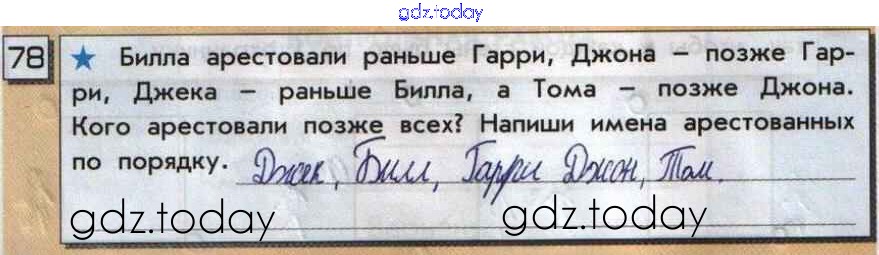 gdz.today
78 ★ Билла арестовали раньше Гарри, Джона – позже Гар-
ри, Джека – раньше Билла, а Тома – позже Джона.
Кого арестовали позже всех? Напиши имена арестованных
по порядку. Джек, Билл, Гарри Джон, Том.
gdz.today gdz.today